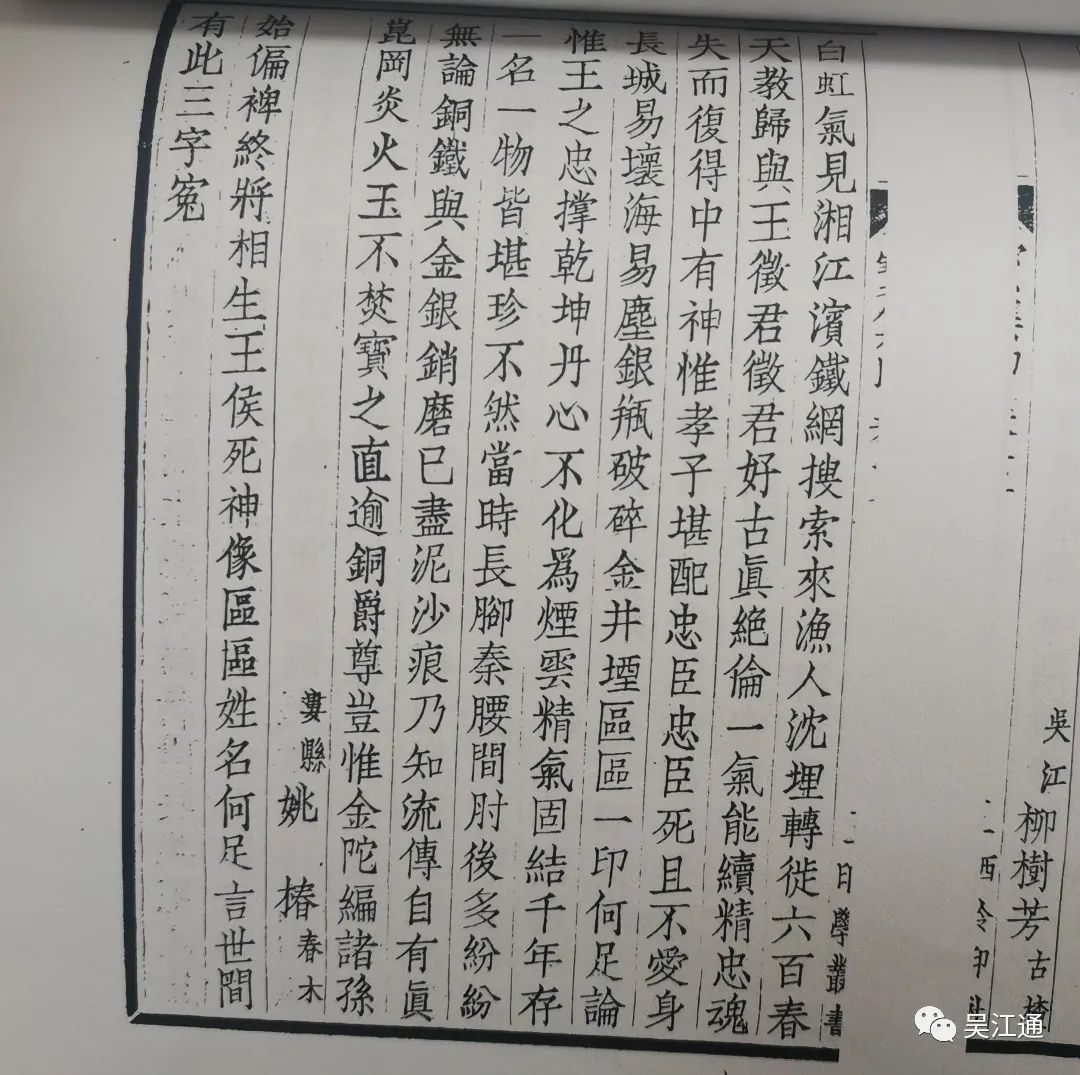 吳江柳樹芳古楂
西泠印
日學叢書
白虹氣見湘江濱鐵網搜索來漁人沈埋轉徙六百春
天教歸與王徵君徵君好古眞絕倫一氣能續精忠魂
失而復得中有神惟孝子堪配忠臣忠臣死且不愛身
長城易壞海易塵銀瓶破碎金井堙區區一印何足論
惟王之忠撑乾坤丹心不化爲煙雲精氣固結千年存
一名一物皆堪珍不然當時長腳秦腰間肘後多紛紛
無論銅鐵與金銀銷磨已盡泥沙痕乃知流傳自有眞
崑岡炎火玉不焚寶之直逾銅爵尊豈惟金陀編諸孫
婁縣姚椿春木
始偏裨終將相生王侯死神像區區姓名何足言世間
有此三字冤
吴江通